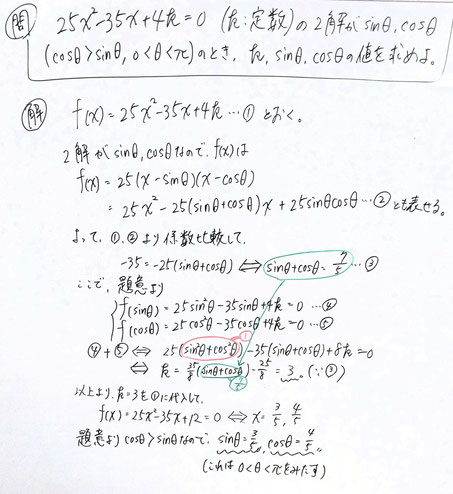 問 25x²-35x+4k=0 (k:定数)の2解がsinθ,cosθ
(cosθ>sinθ, 0<θ<π)のとき, k, sinθ, cosθの値を求めよ。
解 f(x)=25x²-35x+4k…① とおく。
2解がsinθ,cosθなので, f(x)は
f(x)=25(x-sinθ)(x-cosθ)
=25x²-25(sinθ+cosθ)x+25sinθcosθ…② とも表せる。
よって, ①,②より係数比較して,
-35=-25(sinθ+cosθ) ⇔ sinθ+cosθ=7/5…③
ここで, 題意より
f(sinθ)=25sin²θ-35sinθ+4k=0…④
f(cosθ)=25cos²θ-35cosθ+4k=0…⑤
④+⑤ ⇔ 25(sin²θ+cos²θ)-35(sinθ+cosθ)+8k=0
1
⇔ k=35/8(sinθ+cosθ)-25/8=3。(∵③)
7/5
以上より, k=3を①に代入して,
f(x)=25x²-35x+12=0 ⇔ x=3/5, 4/5
題意よりcosθ>sinθなので, sinθ=3/5, cosθ=4/5
(これは0<θ<πをみたす)